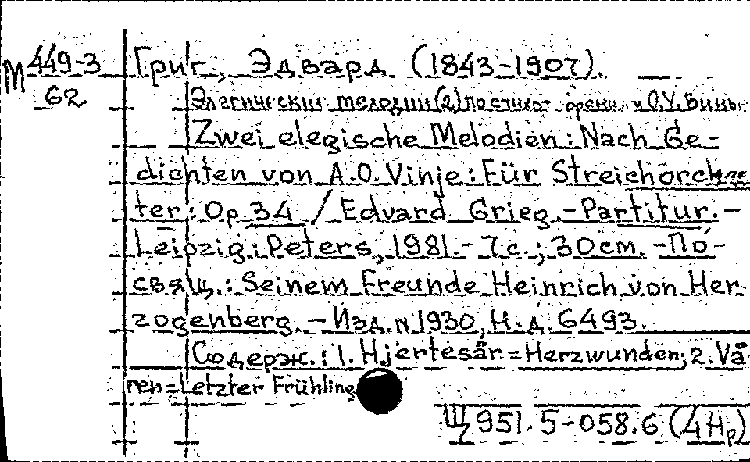 М 449-3 Григ, Эдвард (1843-1907).
62 Элегические мелодии (2)
Zwei elegische Melodien : Nach Ge-
dichten von A.O. Vinje : Für Streichorches
ter : Op 34 / Edvard Grieg. - Partitur. -
Leipzig : Peters, 1981. - 7с. ; 30cm. - По-
свящ. : Seinem Freunde Heinrich von Her
zogenberg. - Изд. N 1930, Н. д. 6493.
Содерж. : 1. Hjertesår = Herzwunden; 2. Vå
ren = Letzter Frühling
Щ 951.5-058.6 (4Нр)